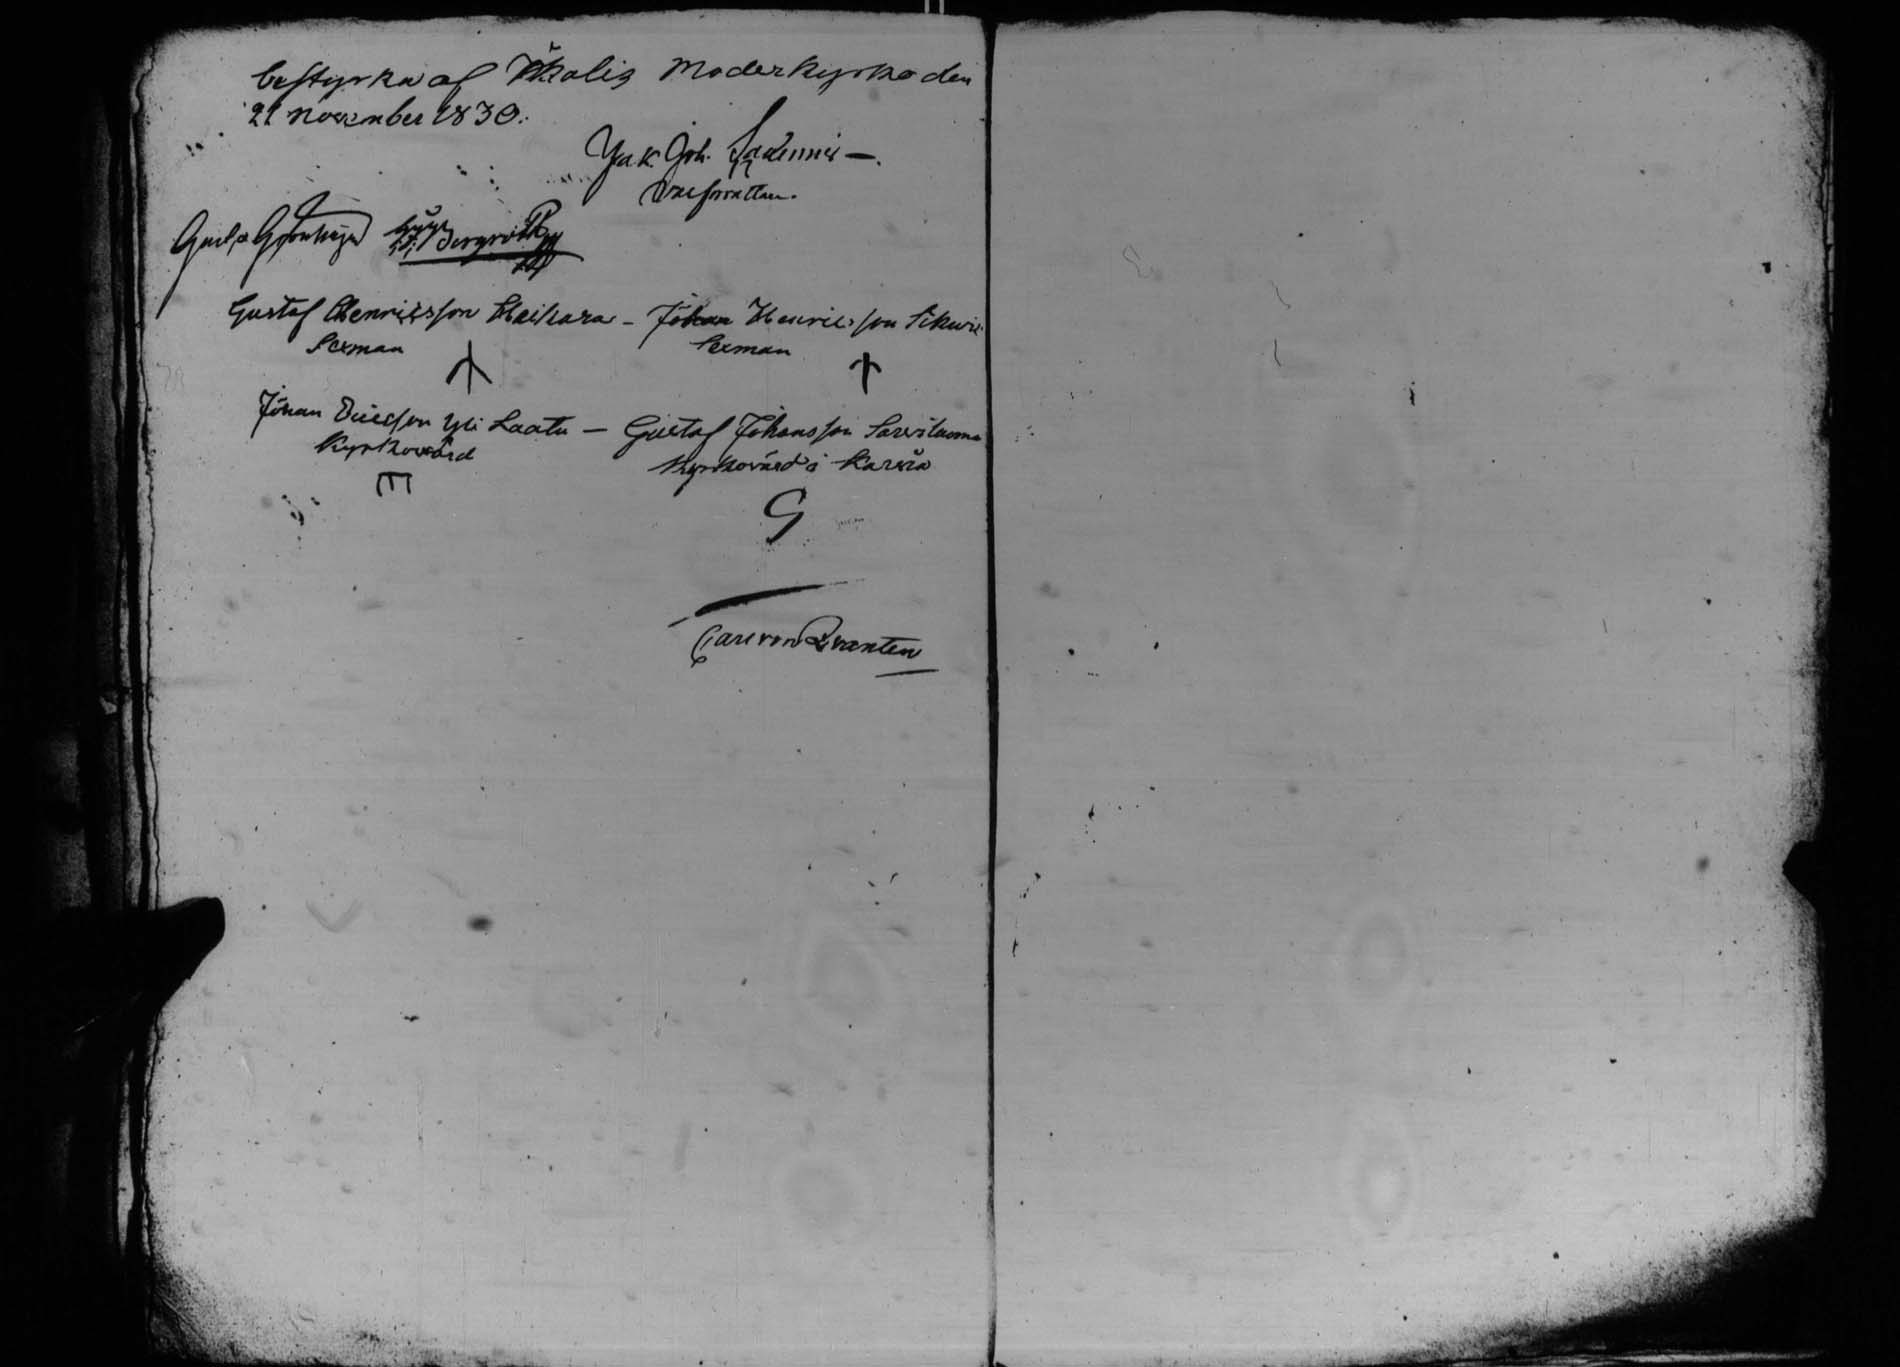 bestyrka af Ikalis Moderkyrka den
21 November 1830.
Jak. Joh.
Gustaf Henricsson Heikara – Johan Henricsson
Sexman Sexman
Johan Ericsson Yli Laatu – Gustaf Johansson Sarviluoma
Kyrkovärd Kyrkovärd i Karvia
G
Carl von Qvanten